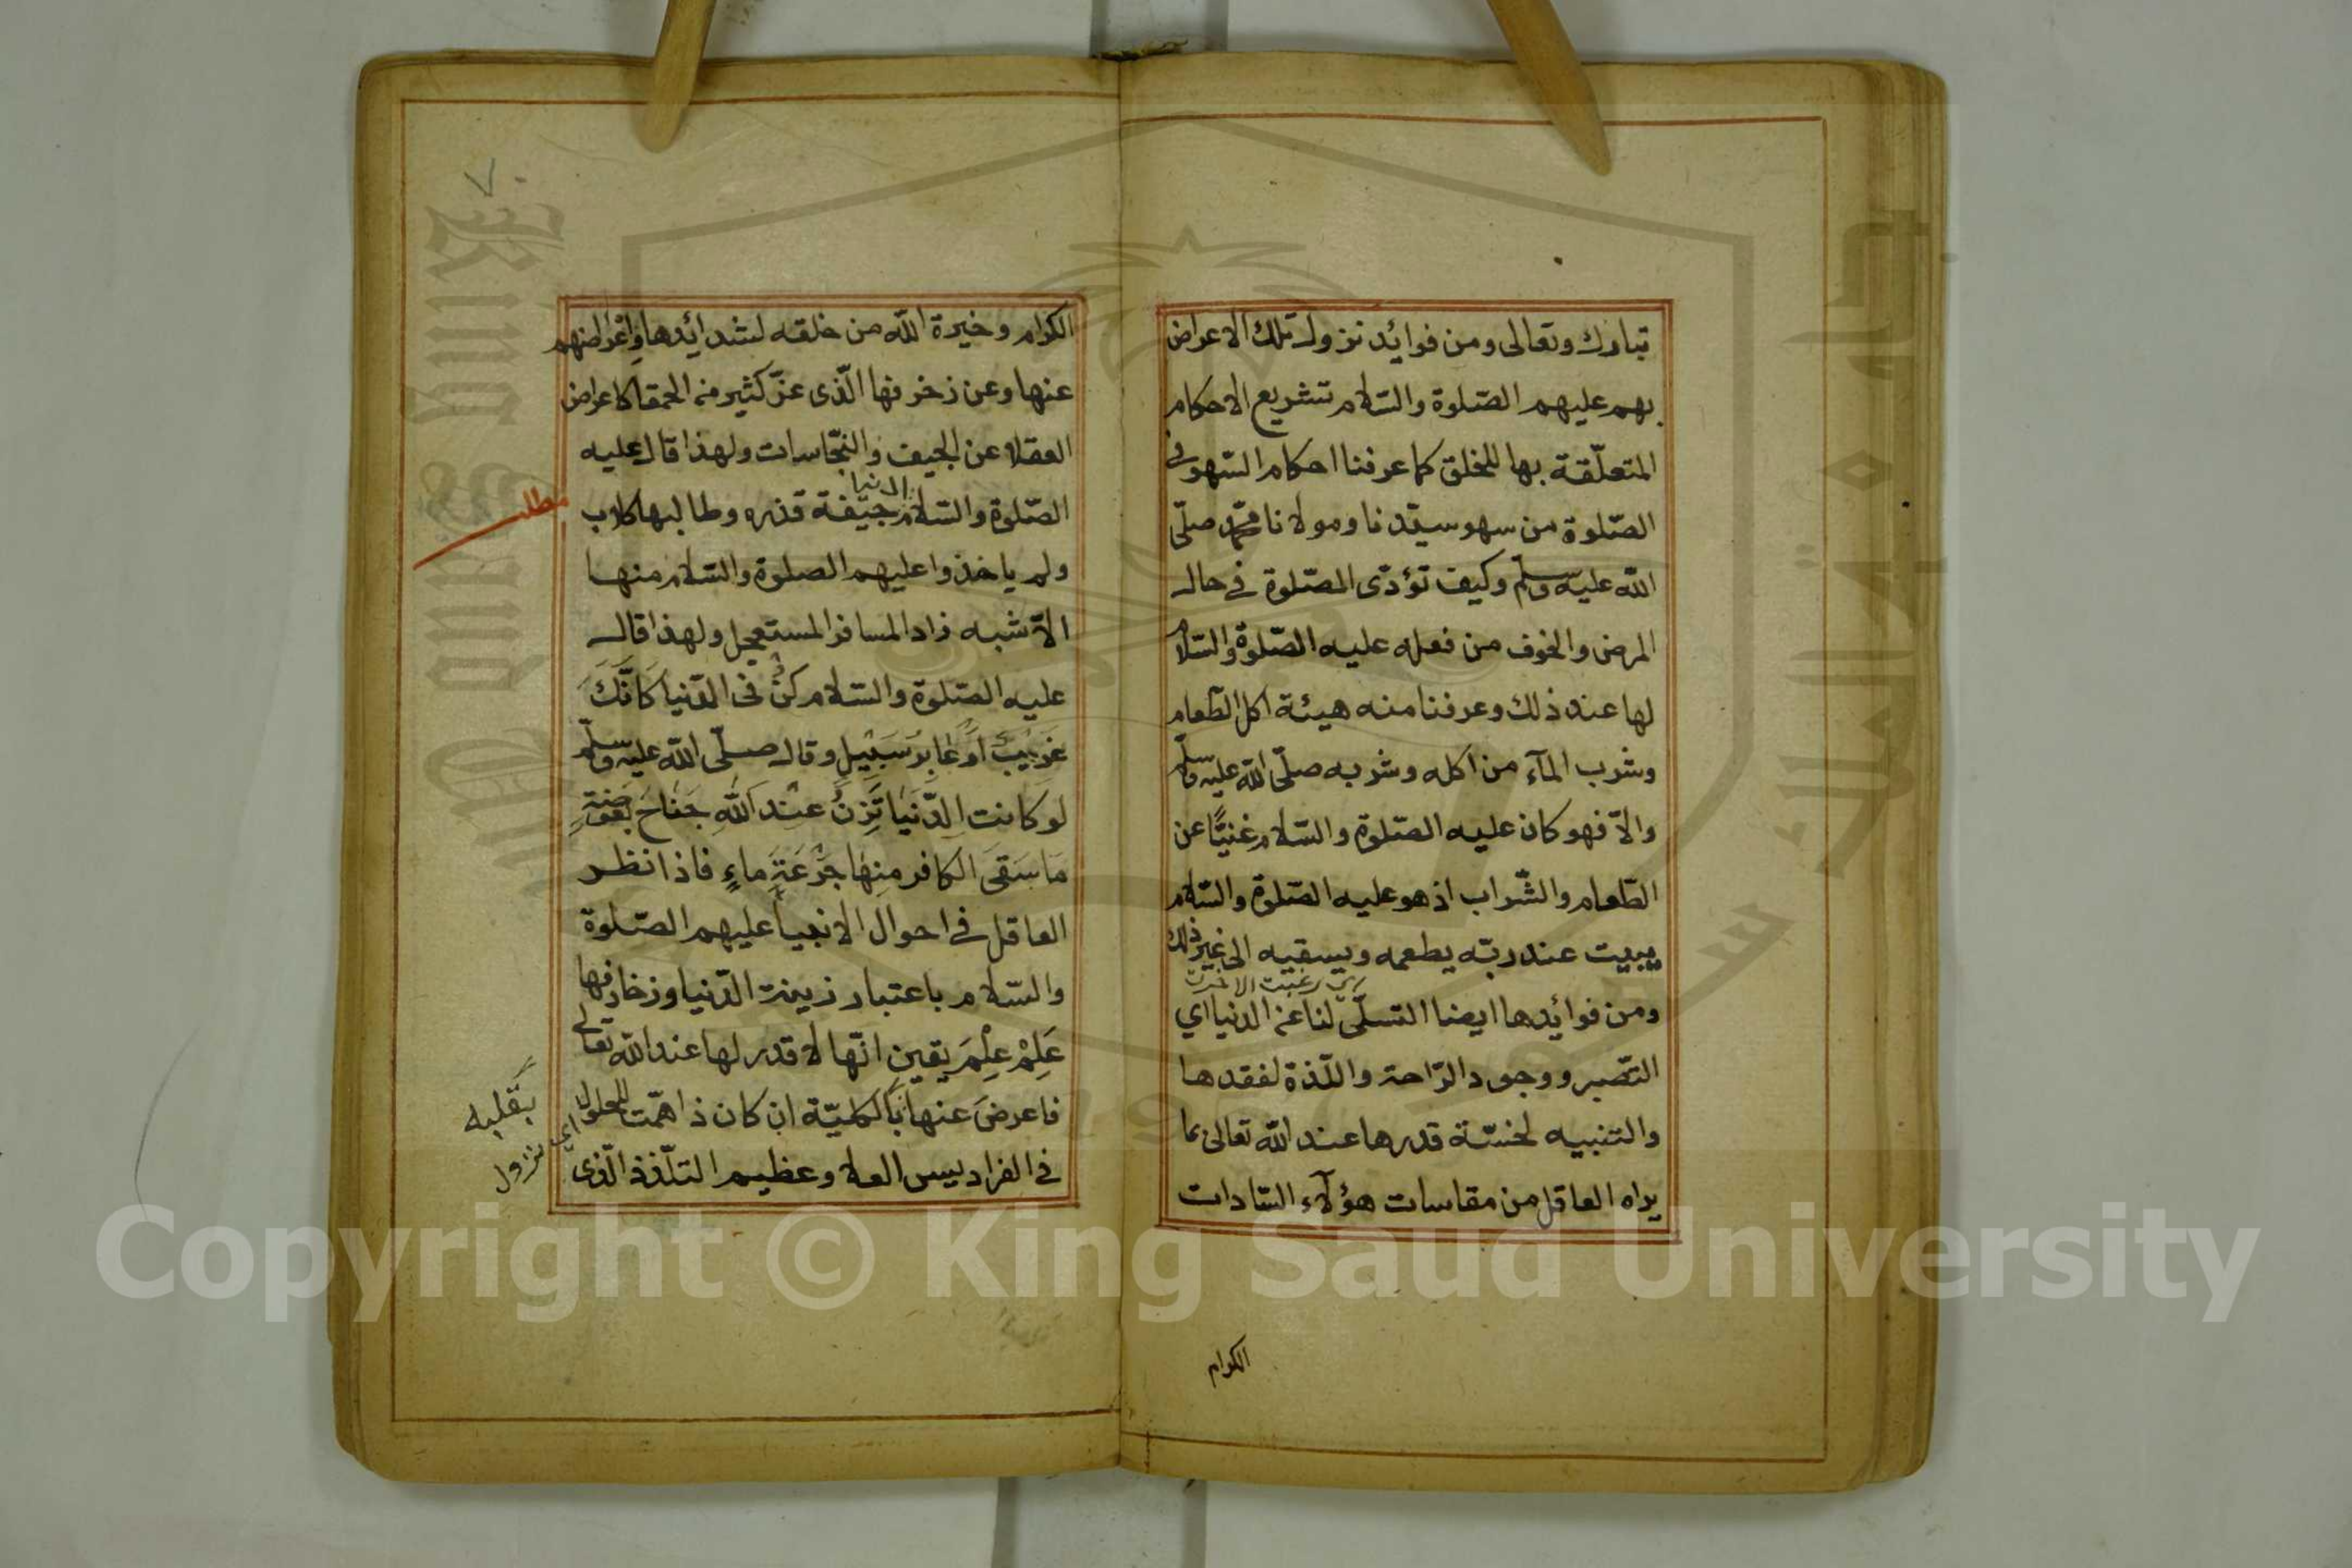 تبارك وتعالى ومن فوائد نزول تلك الاعراض
بهم عليهم الصّلوة والسّلام تشريع الاحكام
المتعلّقة بها للخلق كما عرفنا احكام السّهو في
الصّلوة من سهو سيّدنا ومولانا محمّد صلّى
الله عليه وسلّم وكيف تؤدّى الصّلوة في حال
المرض والخوف من فعله عليه الصّلوة والسّلام
لها عند ذلك وعرفنا منه هيئة اكل الطّعام
وشرب المآء من اكله وشربه صلّى الله عليه وسلّم
والاّ فهو كان عليه الصّلوة والسّلام غنيًّا عن
الطّعام والشّراب اذ هو عليه الصّلوة والسّلام
يبيت عند ربّه يطعمه ويسقيه الى غير ذلك
ومن فوائدها ايضا التسلّى لنا عن الدنيا اي
التّصبر ووجود الرّاحة واللّذة لفقدها
والتنبيه لخسّة قدرها عند الله تعالى بما
يراه العاقل من مقاسات هؤلآء السّادات
الكرام
٧
الكرام وخيرة الله من خلقه لشدائدها واعراضهم
عنها وعن زخرفها الّذى غرّ كثير من الحمقا كاعراض
العقلا عن الجيف والنّجاسات ولهذا قال عليه
الدنيا
الصّلوة والسّلام جيفة قذره وطالبها كلاب
مطلب
ولم ياخذوا عليهم الصلوة والسّلام منها
الاّ شبه زاد المسافر المستعجل ولهذا قال
عليه الصّلوة والسّلام كُنْ في الدّنيا كَأنَّكَ
غَرِيْبٌ اَوْ عَابِرُ سَبِيْلٍ وقال صلّى الله عليه وسلّم
لو كانت الدّنيا تَزِنُ عِنْدَ اللهِ جَنَاحَ بَعُوْضَةٍ
مَا سَقَى الكافر مِنها جَرْعَةَ ماءٍ فاذا نظر
العاقل في احوال الانبيا عليهم الصّلوة
والسّلام باعتبار زينة الدّنيا وزخارفها
عَلِمَ عِلْمَ يقين انّها لا قدر لها عند الله تعالى
فاعرض عنها بالكليّة ان كان ذا همّت للحلول
بقلبه
اى نزول
في الفراديس العلا وعظيم التلّذذ الّذى
Copyright © King Saud University